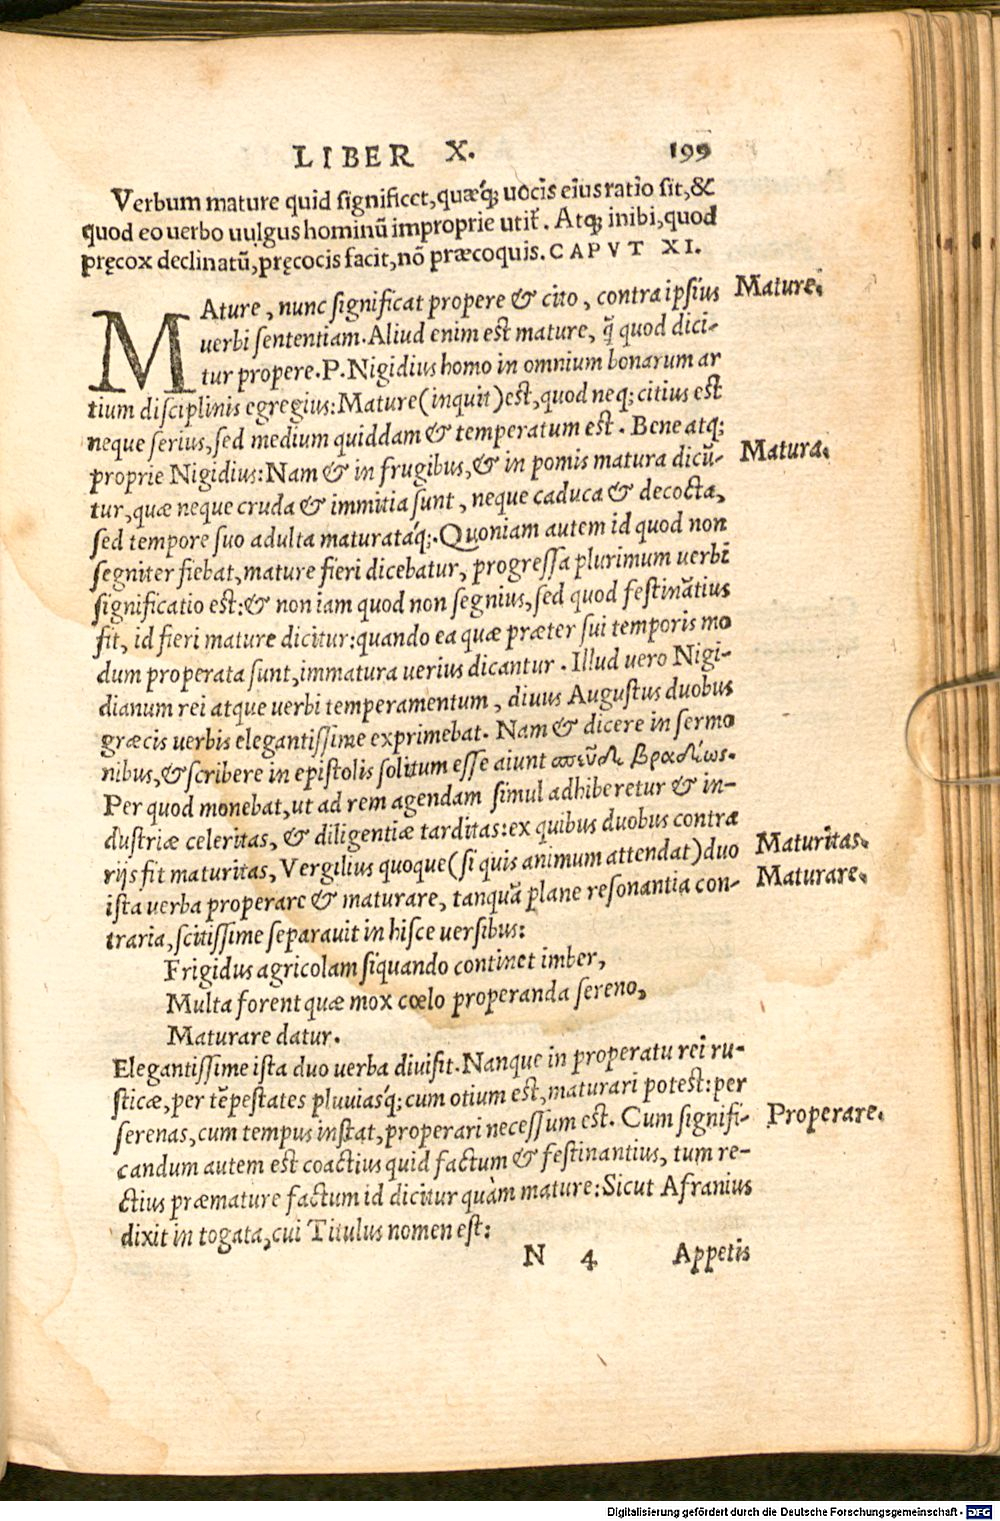 LIBER X. 199
Verbum mature quid significet, quæq́; uocis eius ratio sit, &
quod eo uerbo uulgus hominũ improprie utit̃. Atq; inibi, quod
pręcox declinatũ, pręcocis facit, nõ præcoquis. CAPVT XI.
MAture, nunc significat propere & cito, contra ipsius
Mature.
uerbi sententiam. Aliud enim est mature, q̃ quod dici-
tur propere. P. Nigidius homo in omnium bonarum ar
tium disciplinis egregius: Mature (inquit) est, quod neq; citius est
neque serius, sed medium quiddam & temperatum est. Bene atq;
proprie Nigidius: Nam & in frugibus, & in pomis matura dicũ-
Matura.
tur, quæ neque cruda & immitia sunt, neque caduca & decocta,
sed tempore suo adulta maturataq́;. Quoniam autem id quod non
segniter fiebat, mature fieri dicebatur, progressa plurimum uerbi
significatio est: & non iam quod non segnius, sed quod festinãtius
fit, id fieri mature dicitur: quando ea quæ præter sui temporis mo
dum properata sunt, immatura uerius dicantur. Illud uero Nigi-
dianum rei atque uerbi temperamentum, diuus Augustus duobus
græcis uerbis elegantissime exprimebat. Nam & dicere in sermo
nibus, & scribere in epistolis solitum esse aiunt σπεῦδε βραδέως.
Per quod monebat, ut ad rem agendam simul adhiberetur & in-
dustriæ celeritas, & diligentiæ tarditas: ex quibus duobus contra
rijs fit maturitas, Vergilius quoque (si quis animum attendat) duo
Maturitas.
ista uerba properare & maturare, tanquã plane resonantia con-
Maturare.
traria, scitissime separauit in hisce uersibus:
Frigidus agricolam siquando continet imber,
Multa forent quæ mox cœlo properanda sereno,
Maturare datur.
Elegantissime ista duo uerba diuisit. Nanque in properatu rei ru-
sticæ, per tẽpestates pluuiasq́; cum otium est, maturari potest: per
serenas, cum tempus instat, properari necessum est. Cum signifi-
Properare.
candum autem est coactius quid factum & festinantius, tum re-
ctius præmature factum id dicitur quàm mature: Sicut Afranius
dixit in togata, cui Titulus nomen est:
N 4 Appetis
Digitalisierung gefördert durch die Deutsche Forschungsgemeinschaft - DFG